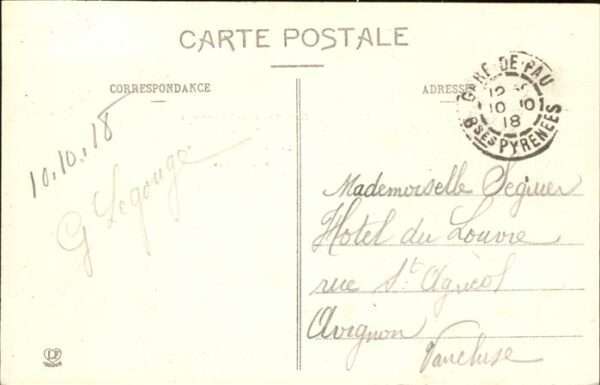 CARTE POSTALE
CORRESPONDANCE
ADRESSE
GARE DE PAU
10 10
18
Bses PYRENEES
10.10.18
G Legouge
Mademoiselle Seguier
Hotel du Louvre
rue St Agricol
Avignon
Vaucluse